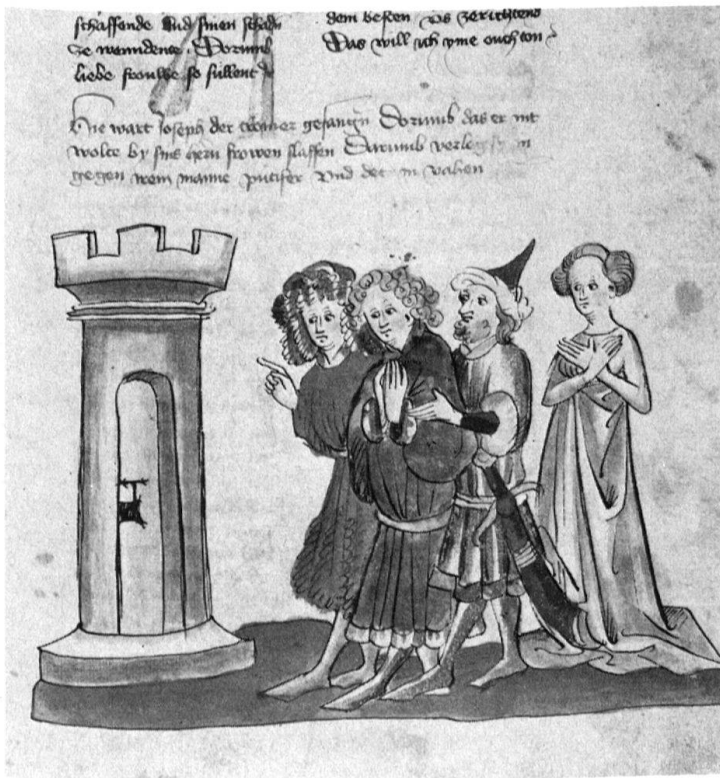 schaffende Und sinen schadn
ze wenndence . Dorumb
liebe frouwe so sullent
dem besten vs zerichtend
Das will ich yme ouch ton
Hie wart Joseph der gefangn Dorumb das er nit
wolte by sins hern frowen slaffen Darumb in
gegen irem manne putifer Vnd det in vahen